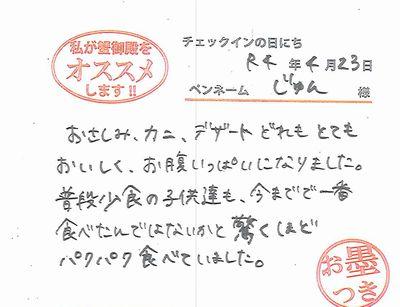 私が蟹御殿を
オススメ
します!!
チェックインの日にち
R4年4月23日
ペンネーム じゅん 様
おさしみ、カニ、デザートどれもとても
おいしく、お腹いっぱいになりました。
普段少食の子供達も、今までで一番
食べたんではないかと驚くほど
パクパク食べていました。
お墨
つき